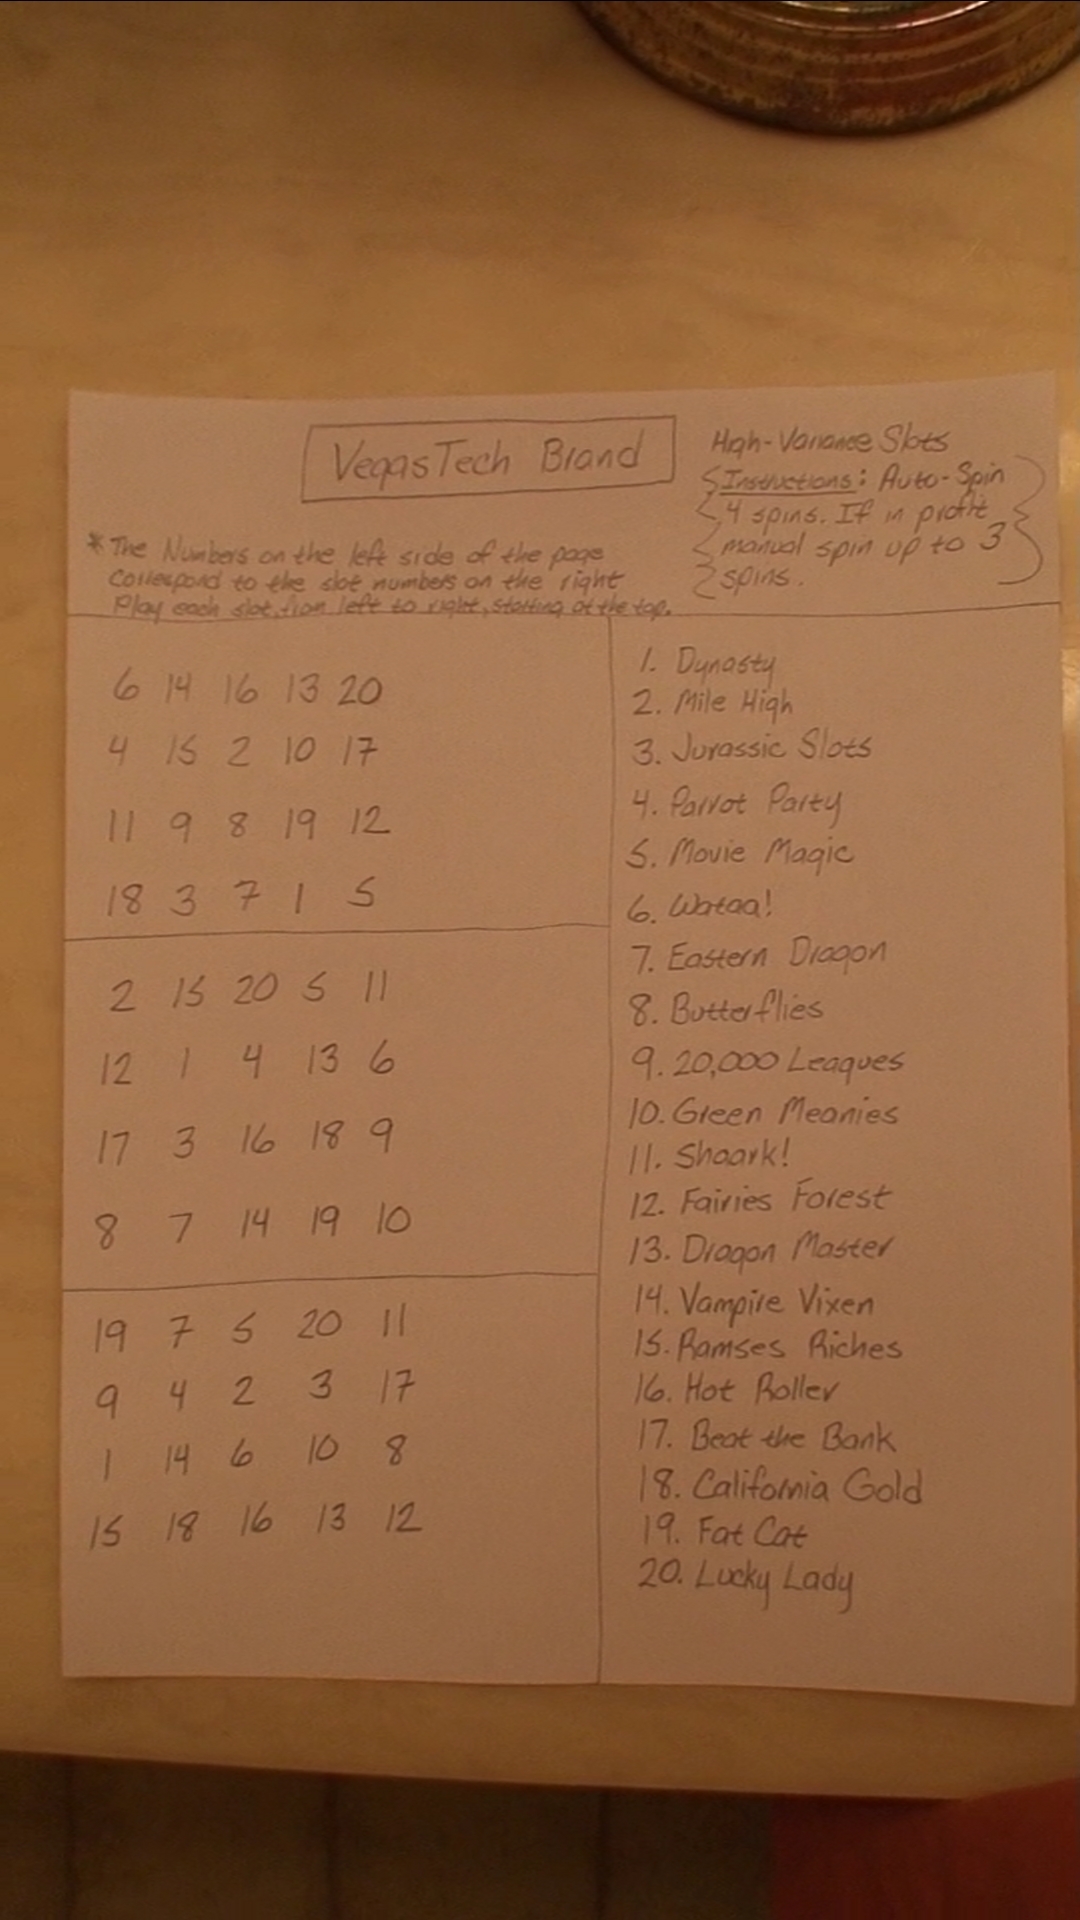 VegasTech Brand
High-Variance Slots
Instructions: Auto-Spin
4 spins. If in profit
manual spin up to 3
spins.
* The Numbers on the left side of the page
correspond to the slot numbers on the right
Play each slot, from left to right, starting at the top.
6 14 16 13 20
4 15 2 10 17
11 9 8 19 12
18 3 7 1 5
2 15 20 5 11
12 1 4 13 6
17 3 16 18 9
8 7 14 19 10
19 7 5 20 11
9 4 2 3 17
1 14 6 10 8
15 18 16 13 12
1. Dynasty
2. Mile High
3. Jurassic Slots
4. Parrot Party
5. Movie Magic
6. Wataa!
7. Eastern Dragon
8. Butterflies
9. 20,000 Leagues
10. Green Meanies
11. Shaark!
12. Fairies Forest
13. Dragon Master
14. Vampire Vixen
15. Ramses Riches
16. Hot Roller
17. Beat the Bank
18. California Gold
19. Fat Cat
20. Lucky Lady